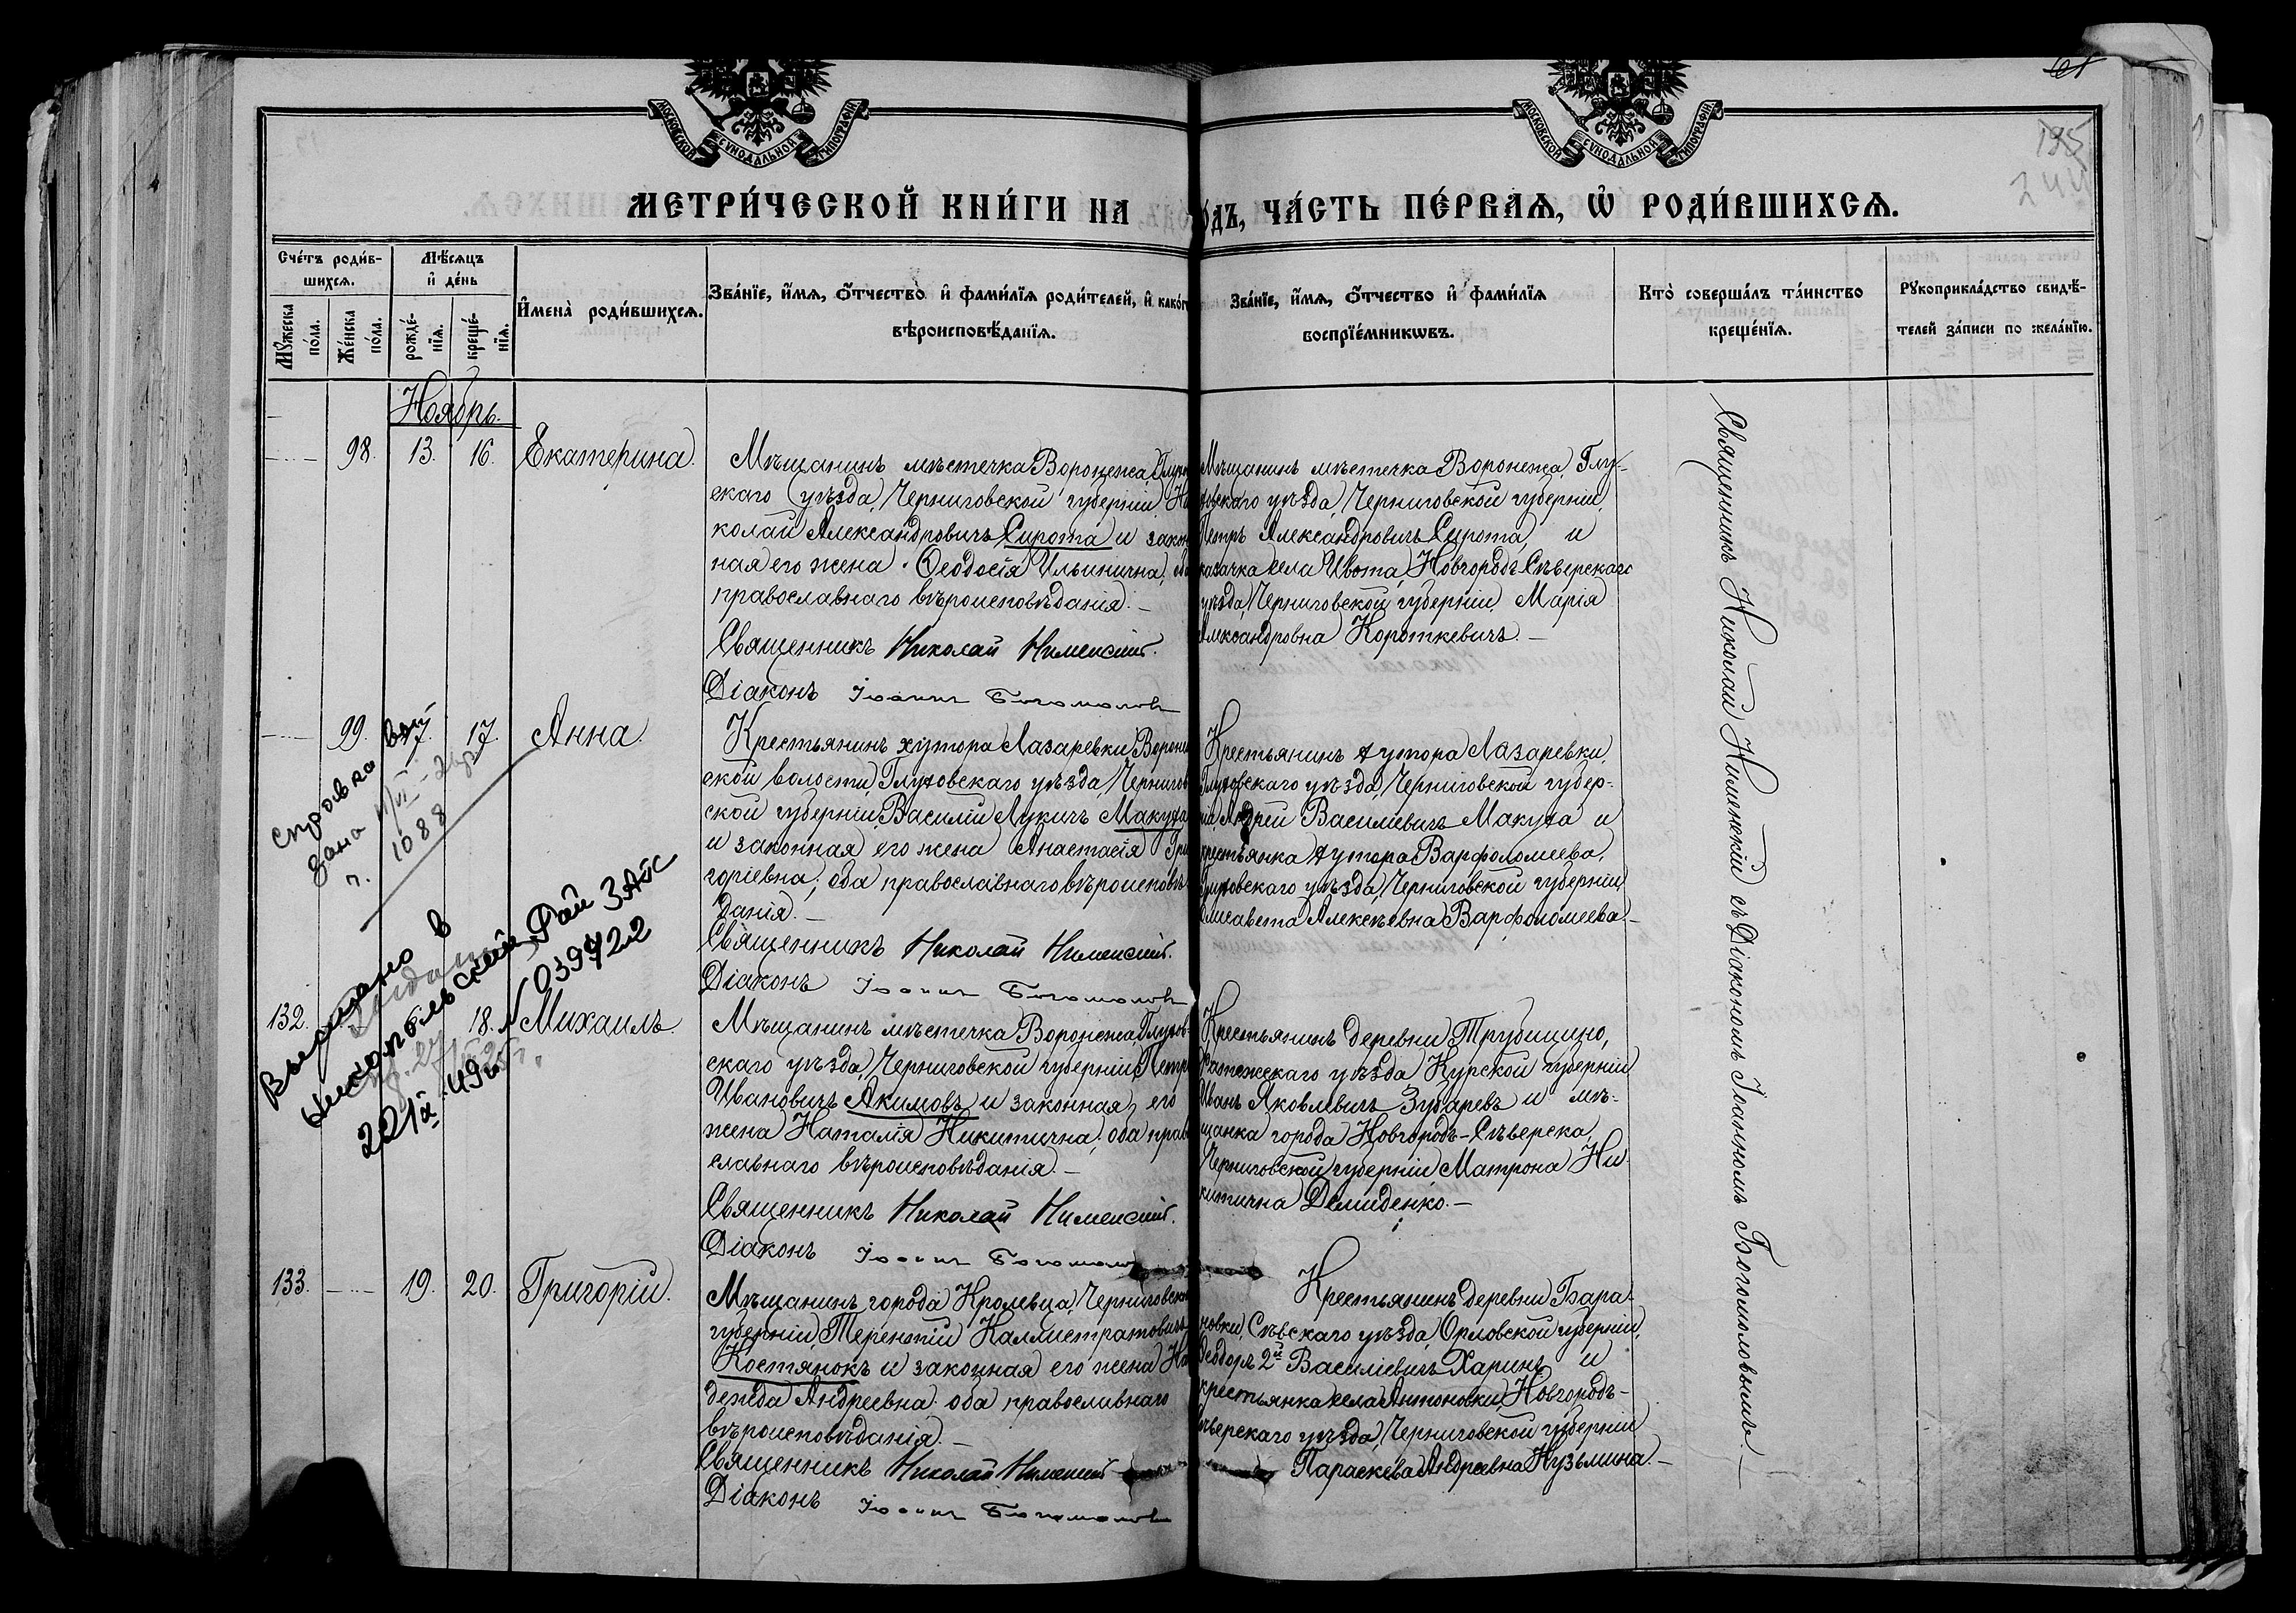 61
195
244
МОСКОВСКОЙ СУНОДАЛЬНОЙ ТИПОГРАФІИ
МОСКОВСКОЙ СУНОДАЛЬНОЙ ТИПОГРАФІИ
МЕТРИ́ЧЕСКОЙ КНИ́ГИ НА ОДЪ, ЧА́СТЬ ПЕ́РВАѦ, Ѡ҆ РОДИ́ВШИХСѦ.
Сче́тъ роди́в-
шихсѧ.
Мꙋ́жеска по́ла.
Же́нска по́ла.
Мѣ́сѧцъ
и҆ де́нь
рожде́-
нїѧ.
креще́-
нїѧ.
И҆мена̀ роди́вшихсѧ.
Зва́нїе, и҆́мѧ, ѻ҆́тчество и҆ фами́лїѧ роди́телей, и҆ како́гѡ
вѣроисповѣ́данїѧ.
Зва́нїе, и҆́мѧ, ѻ҆́тчество и҆ фами́лїѧ
воспрїе́мникѡвъ.
Кто̀ соверша́лъ та́инство
креще́нїѧ.
Рꙋкоприкла́дство свидѣ́-
телей за́писи по жела́нїю.
Ноябрь.
98. 13. 16. Екатерина.
Мѣщанинъ мѣстечка Воронежа, Глухов
скаго уѣзда, Черниговской губерніи Ни
колай Александровичъ Сирота и закон
ная его жена Ѳеодосія Ильинична; оба
православнаго вѣроисповѣданія.–
Священникъ Николай Нименскій.
Діаконъ Іоаннъ Богомоловъ
Мѣщанинъ мѣстечка Воронежа, Глу-
ховскаго уѣзда, Черниговской губерніи,
Петръ Александровичъ Сирота, и
казачка села Ивота, Новгородъ-Сѣверскаго
уѣзда, Черниговской губерніи Марія
Александровна Короткевичъ.–
99. 17. 17. Анна.
Крестьянинъ хутора Лазаревки Вороне
ской волости, Глуховскаго уѣзда, Чернигов
ской губерніи, Василій Лукичъ Макуха
и законная его жена Анастасія Гри
горіевна; оба православнаго вѣроисповѣ
данія.–
Священникъ Николай Нименскій.
Діаконъ Іоаннъ Богомоловъ
Крестьянинъ хутора Лазаревки,
Глуховскаго уѣзда, Черниговской губер-
ніи, Андрей Василіевичъ Макуха и
крестьянка хутора Варфоломеева,
Глуховскаго уѣзда, Черниговской губерніи
Елисавета Алексѣевна Варфоломеева.–
справка
дана
1088
132. 18. Михаилъ.
Выслано в
Никопольский Рай ЗАГС
039422
Мѣщанинъ мѣстечка Воронежа, Глухов-
скаго уѣзда, Черниговской губерніи, Петръ
Ивановичъ Акимовъ и законная его
жена Наталія Никитична; оба право
славнаго вѣроисповѣданія.–
Священникъ Николай Нименскій.
Діаконъ Іоаннъ Богомоловъ
Крестьянинъ деревни Трубицино,
Фатежскаго уѣзда Курской губерніи
Иванъ Яковлевичъ Зубаревъ и мѣ-
щанка города Новгородъ-Сѣверска,
Черниговской губерніи Матрона Ни-
китична Демиденко.–
133. 19. 20. Григорій.
Мѣщанинъ города Кролевца, Черниговской
губерніи, Терентій Каллистратовичъ
Костянокъ и законная его жена На
дежда Андреевна; оба православнаго
вѣроисповѣданія.–
Священникъ Николай Нименскій
Діаконъ Іоаннъ Богомоловъ
Крестьянинъ деревни Бара
новки, Сѣвскаго уѣзда, Орловской губерніи,
Ѳеодоръ 2й Василіевичъ Харинъ и
крестьянка села Антоновки, Новгородъ-
Сѣверскаго уѣзда, Черниговской губерніи
Параскева Андреевна Кузьмина.–
Священникъ Николай Нименскій съ Діакономъ Іоанномъ Богомоловымъ.–